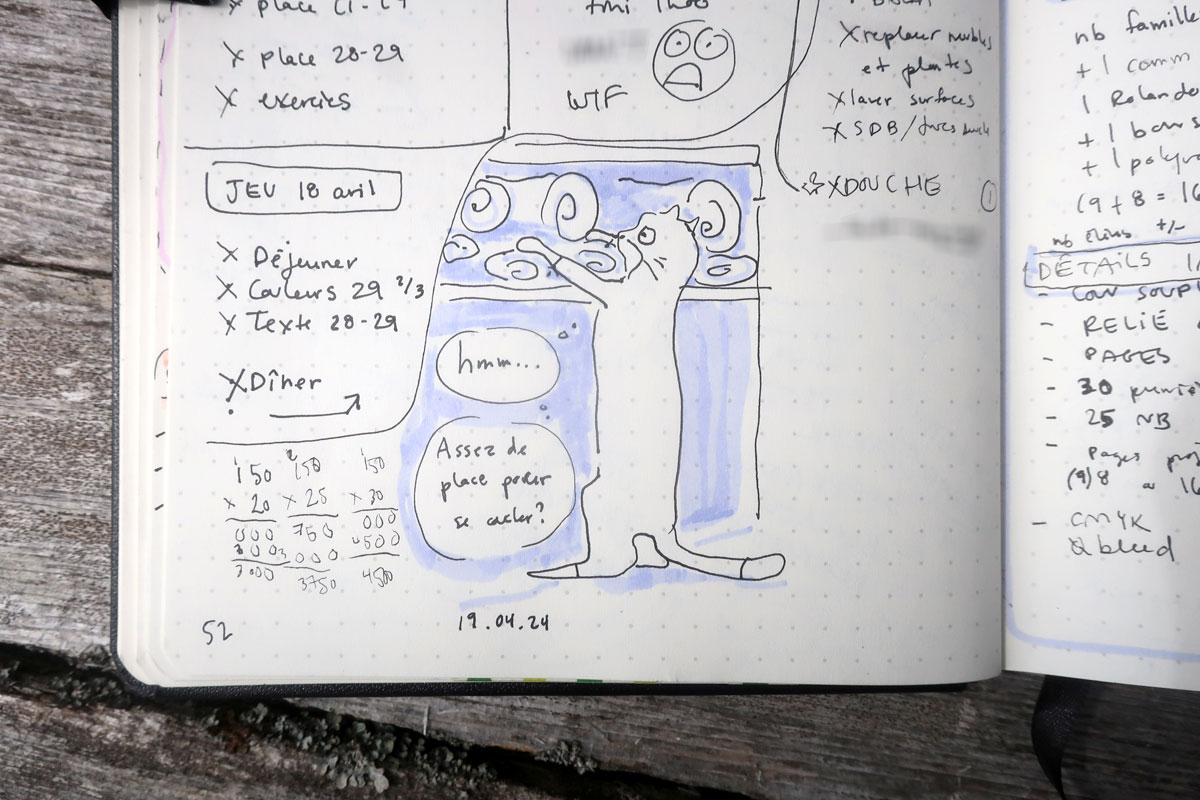 X place
X place 20-29
X exercies
WTF
X replacer meubles
et plantes
X laver surfaces
X SDB/
X DOUCHE
JEU 18 avril
X Déjeuner
X Couleurs 29 2/3
X Texte 28-29
X Dîner
hmm...
Assez de
place pour
se cacher?
150
x 20
000
3000
150
x 25
750
3000
3750
150
x 30
000
4500
4500
52
19.04.24
nb famille
+ 1 comm
1 Rolando
+ 1
+ 1
(9+8 = 16
nb élins +/-
DÉTAILS
- RELIÉ
- PAGES
- 30
- 25 NB
- Pages
(9)8 a 16
- CMYK
& bleed